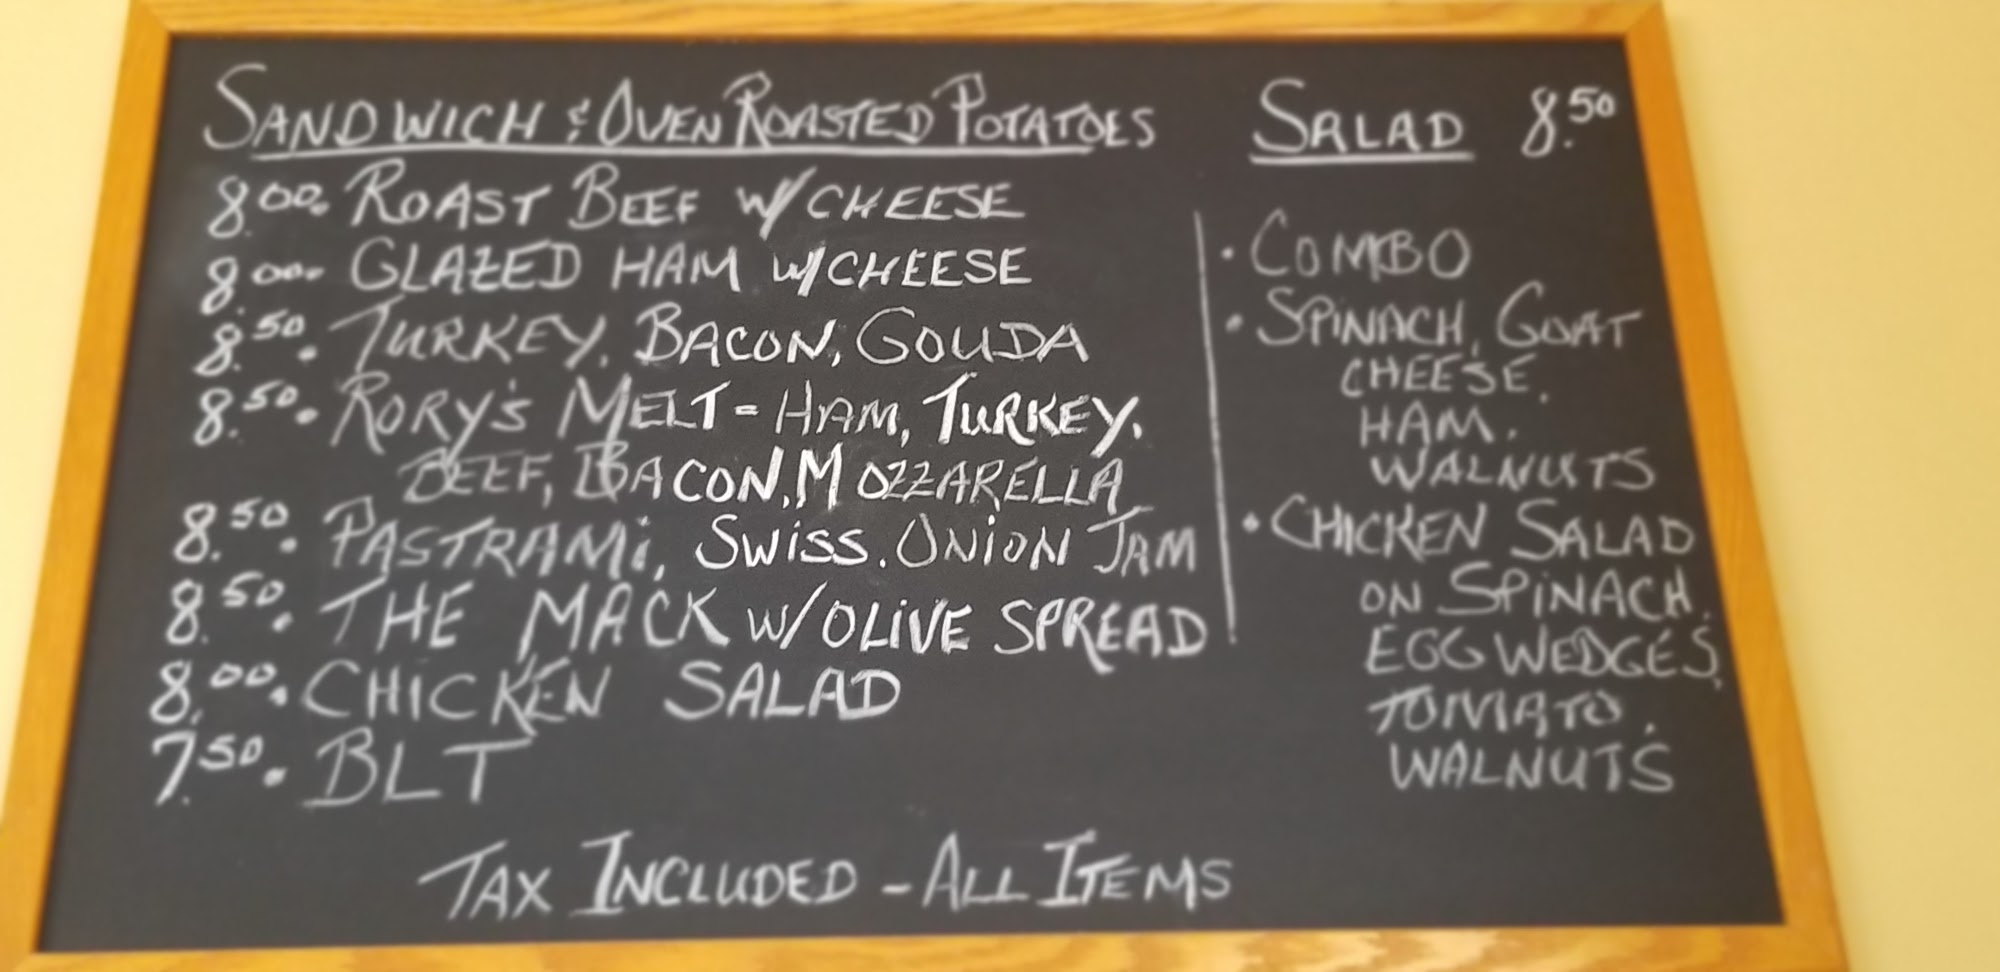 SANDWICH & OVEN ROASTED POTATOES
8.00. ROAST BEEF W/CHEESE
8.00. GLAZED HAM W/CHEESE
8.50. TURKEY, BACON, GOUDA
8.50. RORY'S MELT = HAM, TURKEY,
BEEF, BACON, MOZZARELLA
8.50. PASTRAMi, SWiSS. ONiON JAM
8.50. THE MACK W/OLiVE SPREAD
8.00. CHICKEN SALAD
7.50. BLT
SALAD 8.50
• COMBO
• SPiNACH, GOAT
CHEESE.
HAM.
WALNUTS
• CHICKEN SALAD
ON SPiNACH.
EGG WEDGES,
TOMATO.
WALNUTS
TAX INCLUDED - ALL ITEMS